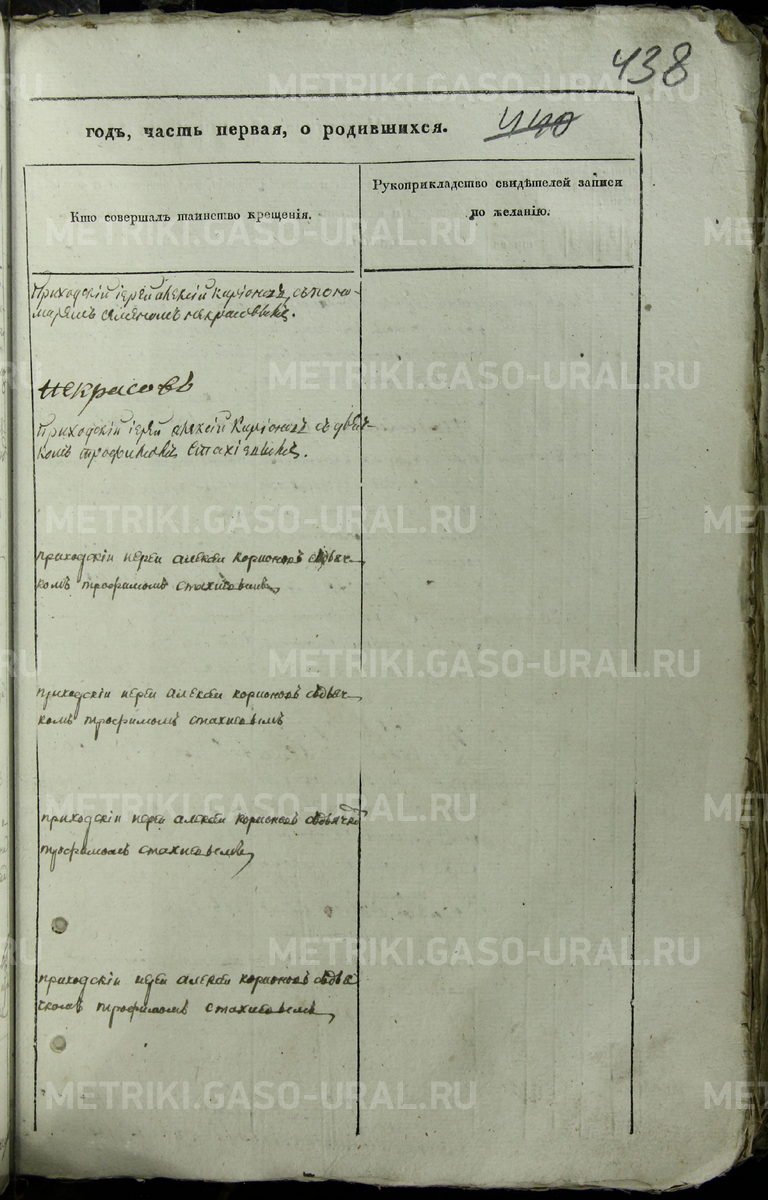 438
годъ, часть первая, о родившихся.
440
Кто совершалъ таинство крещенія.
Рукоприкладство свидѣтелей записи
по желанію.
Приходскій іерей Алексій Каріоновъ, съ поно-
маремъ Некрасовымъ.
Некрасовъ
Приходскій іерей Алексій Каріоновъ съ дьяч-
комъ Трофимомъ Стахіевымъ.
приходскіи иереи алексеи корионовъ здьяч
комъ трофимомъ стахиевымъ
приходскіи иереи алексеи корионовъ здьяч
комъ трофимомъ стахиевымъ
приходскіи иереи алексеи корионовъ
трофимомъ стахиевымъ
приходскіи иереи алексеи корионовъ здья
чкомъ трофимомъ стахиевымъ
METRIKI.GASO-URAL.RU